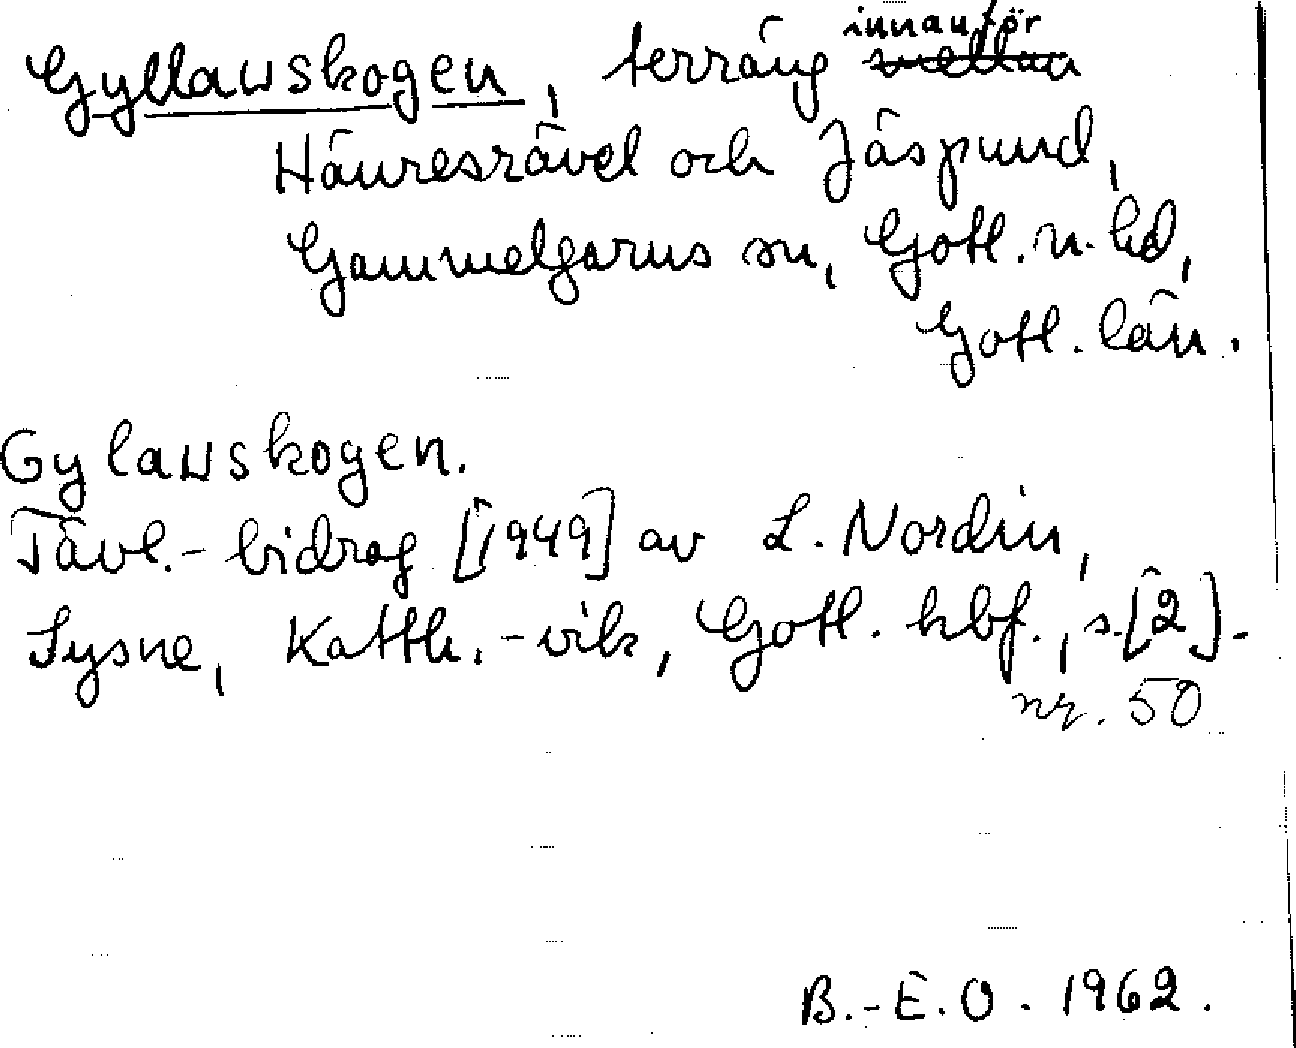 Gyllauskogen, terräng innanför
Hänresrävel och Jäspund,
Gammelgarns sn, Gotl. n. hd,
Gotl. län.
Gylauskogen.
Tävl.-bidrag [1949] av L. Nordin,
Sysne, Katth.-vik, Gotl. hbf., s. [2].
nr. 50
B.-E. O. 1962.